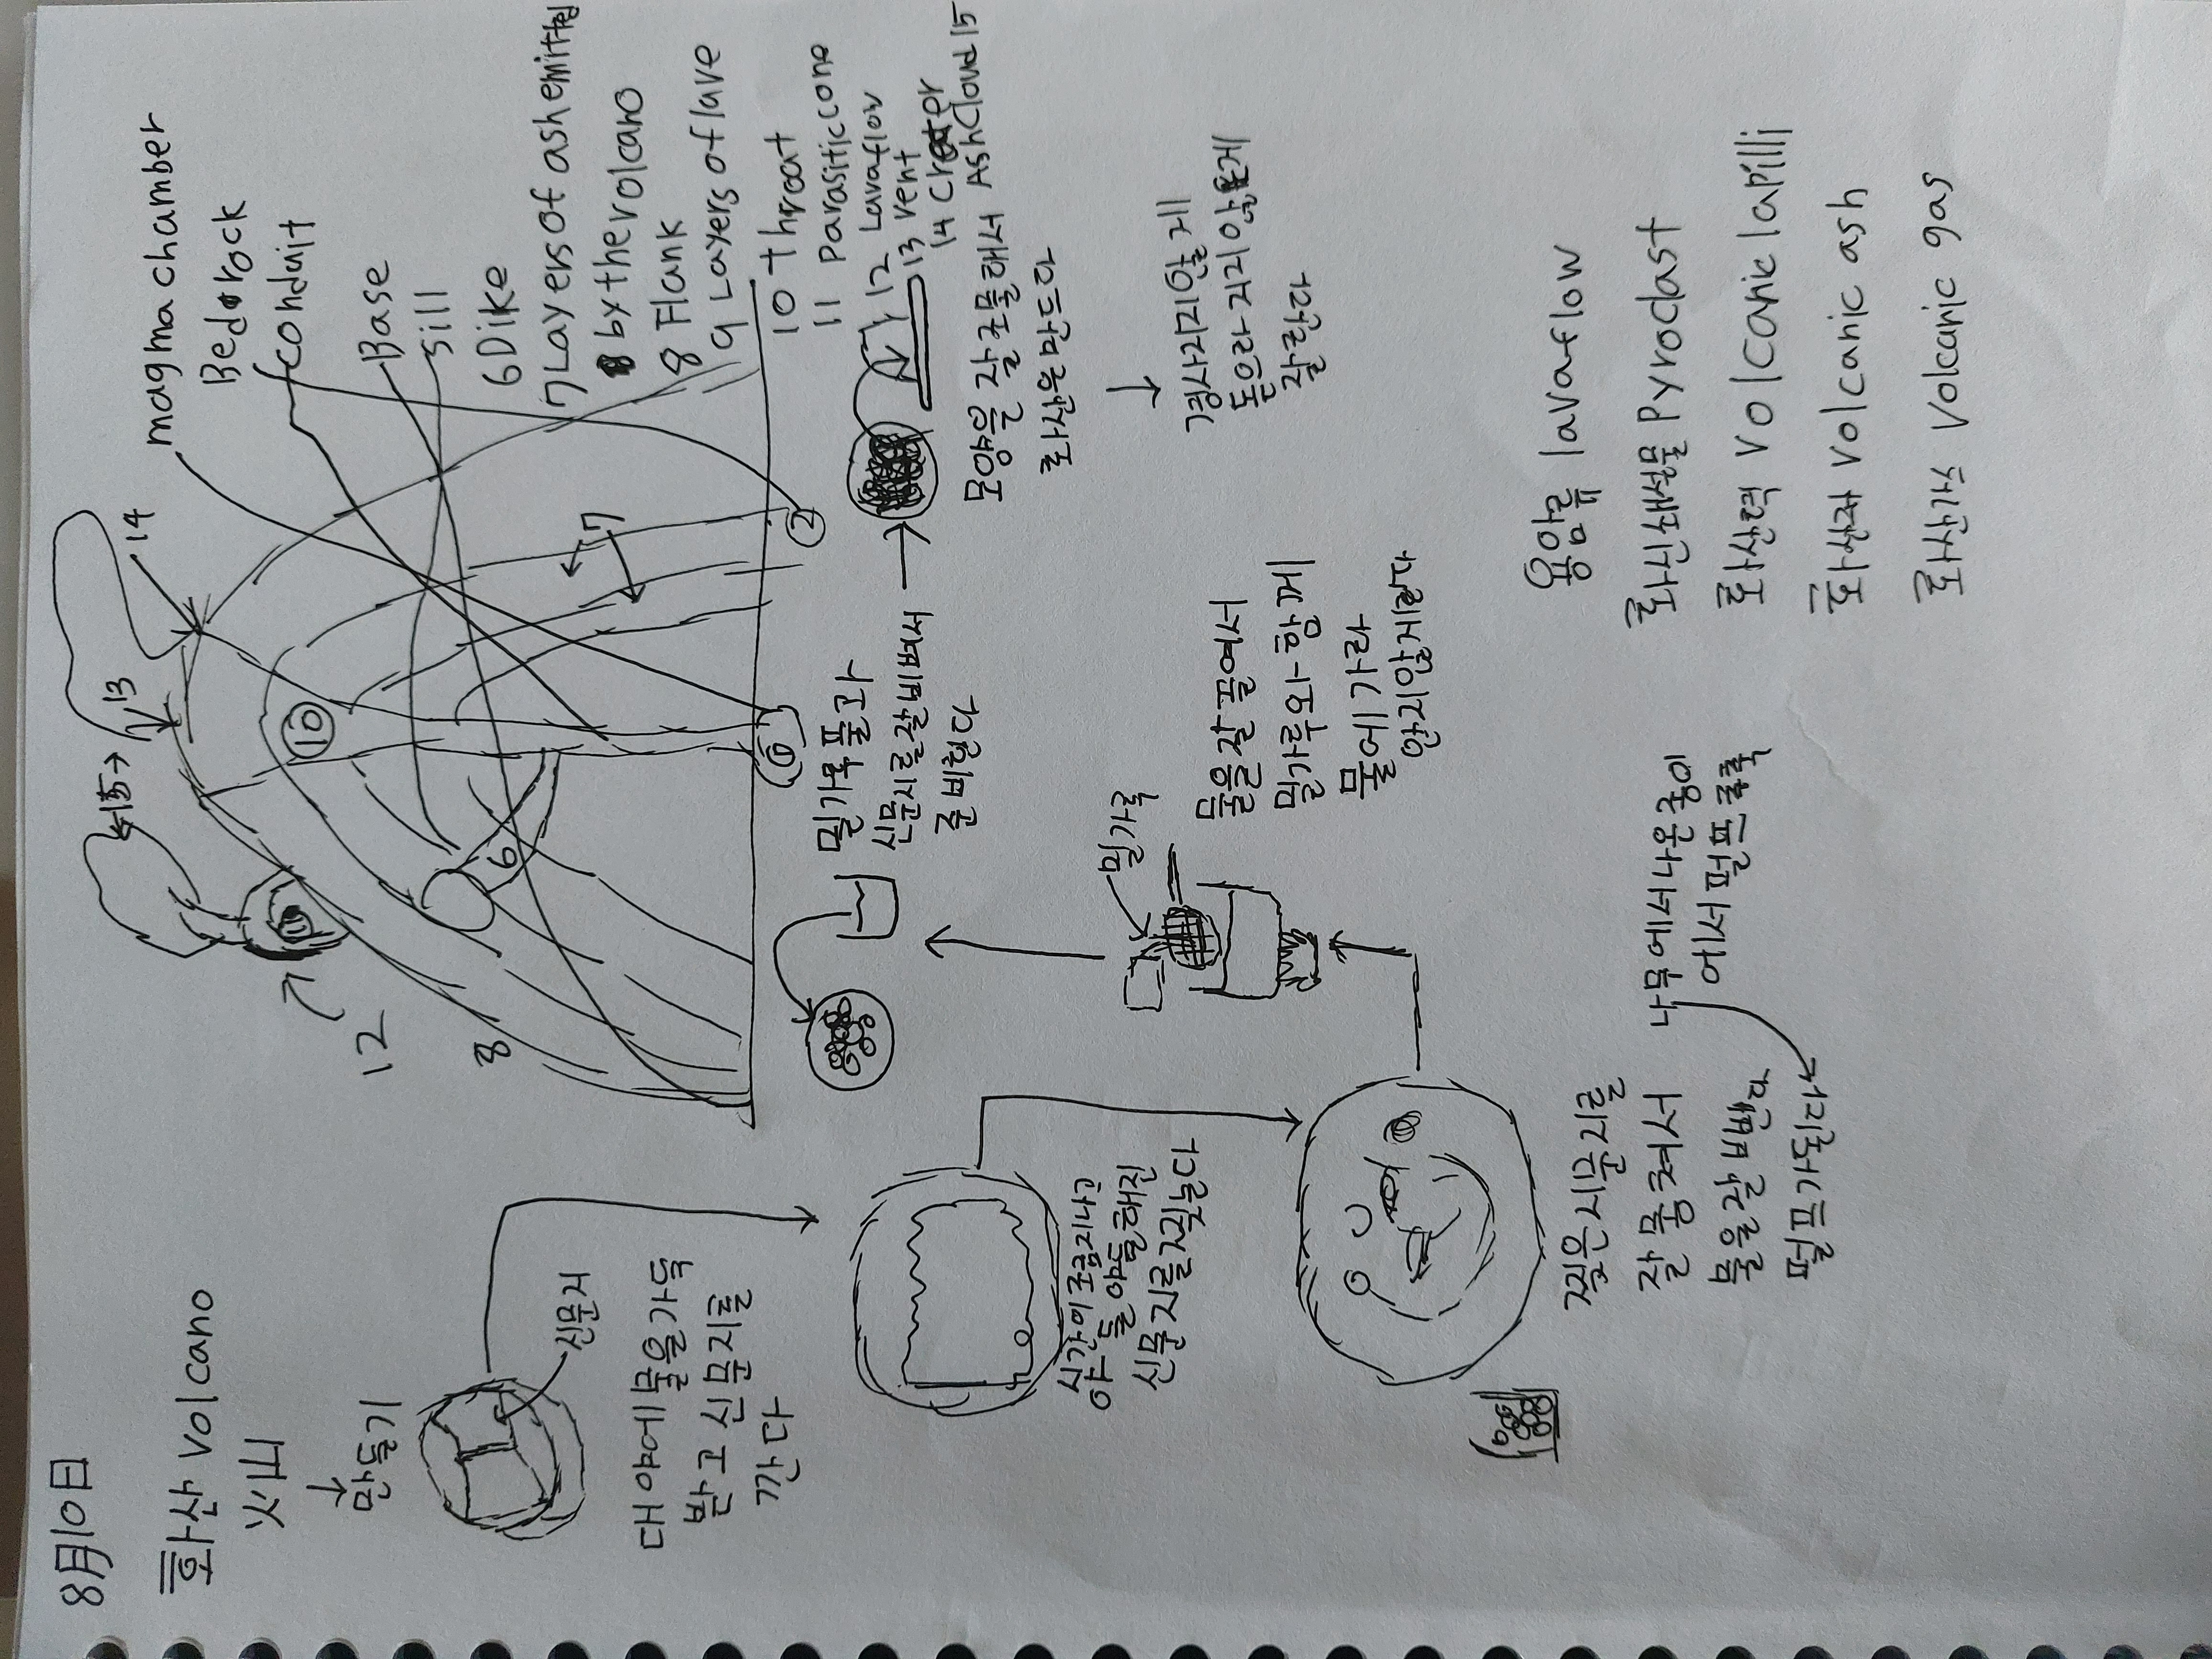 8月10日
화산 volcano
火山
↓
만들기
신문지
대야에 물을 가득
받고 신문지를
깐다
시간이 조금 지나고
야들야들해진
신문지를 찢는다
찢은 신문지를
잘 뭉쳐서
물을 잘 비벼라
펄프가 되리라
나무에서 나온 종이
에서 펄프 쭉쭉
밀가루
물을 잘 끓여서
밀가루와 함께
물에 가라
앉지 않게 한다
밀가루 풀과
신문지를 잘 비벼서
준비한다
모양을 잘 조물해서
화산을 만든다
↓
경사지지 않게
흩으러지지 않게
잘 한다
magma chamber
Bedrock
conduit
Base
Sill
6 Dike
7 Layers of ash emitted
by the volcano
8 Flank
9 Layers of lave
10 throat
11 Parasitic cone
12 Lava flow
13 vent
14 Crater
Ash Cloud 15
14
13
15
10
11
12
8
6
7
2
용암류 lava flow
화산쇄설물 Pyroclast
화산력 volcanic lapilli
화산재 volcanic ash
화산가스 volcanic gas